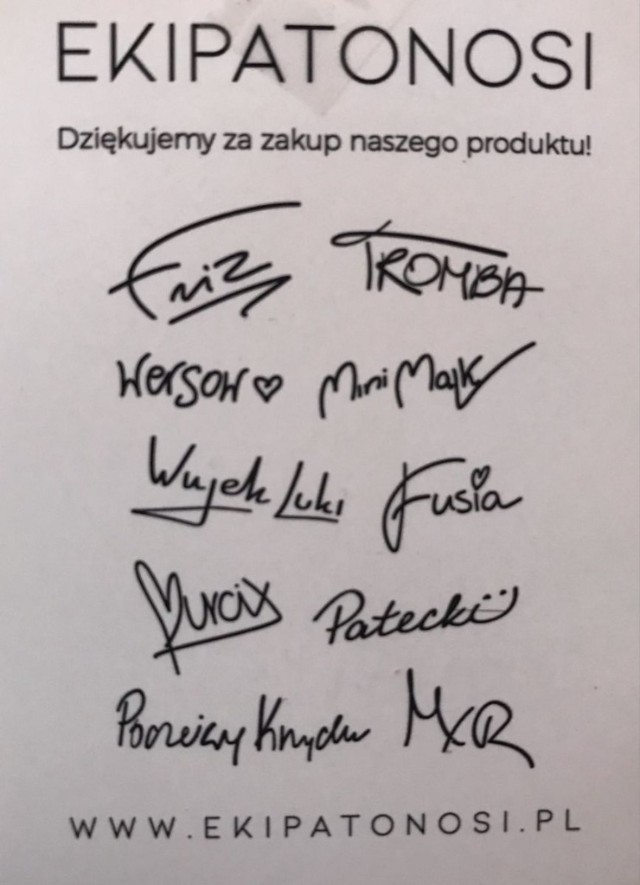 EKIPATONOSI
Dziękujemy za zakup naszego produktu!
Friz TROMBA
Wersow ♡ Mini Majk
Wujek Luki Fusia
Murcix Patecki
Poczciwy Krzychu MXR
WWW.EKIPATONOSI.PL